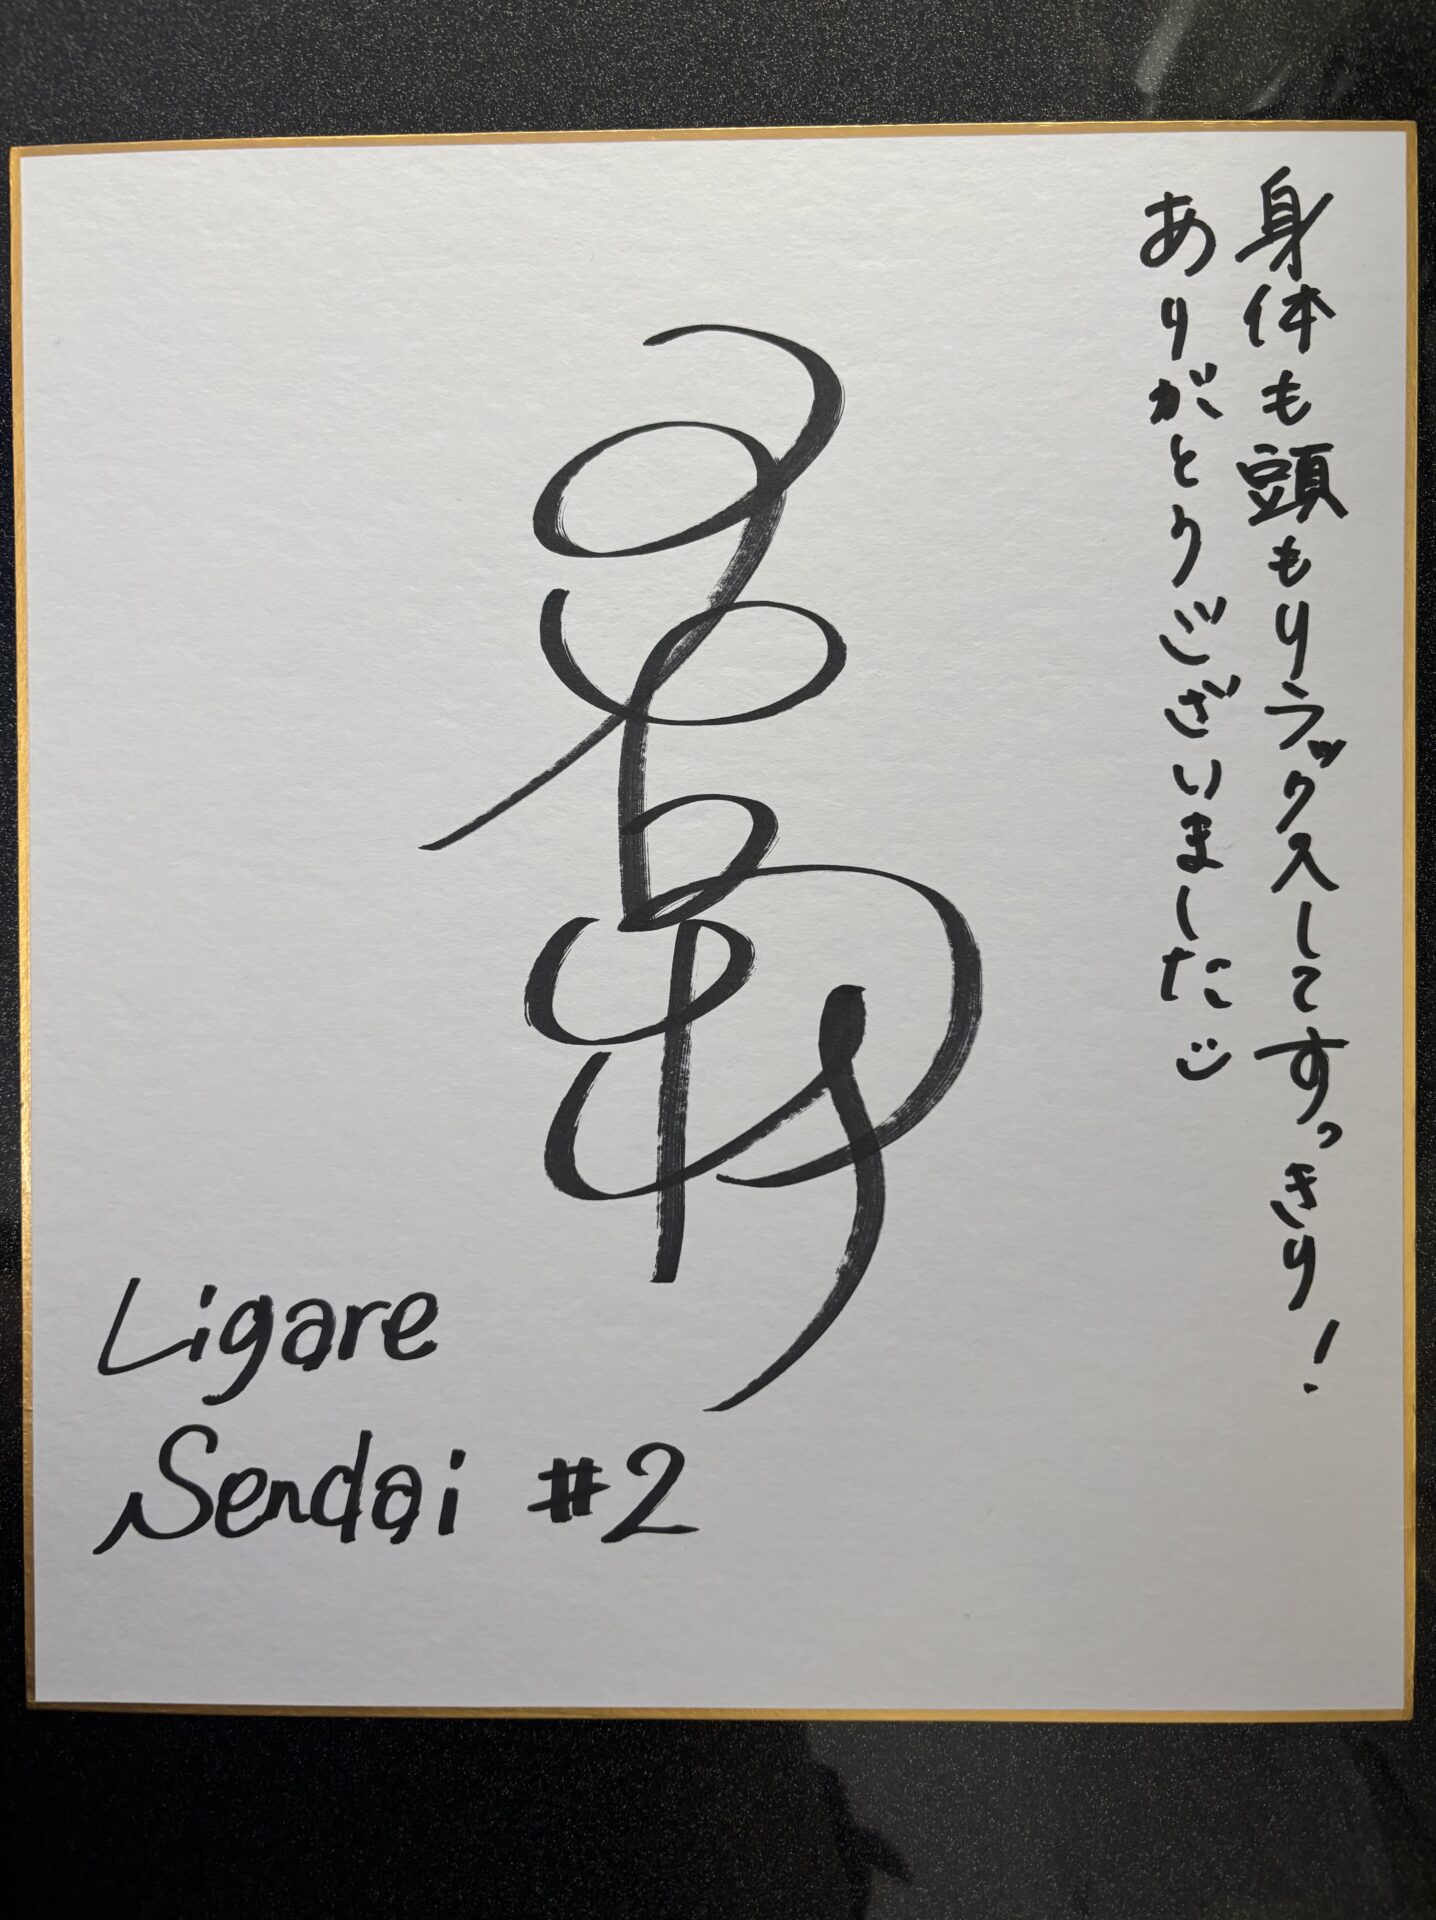 身体も頭もリラックスしてすっきり!
ありがとうございました
Ligare
Sendai #2